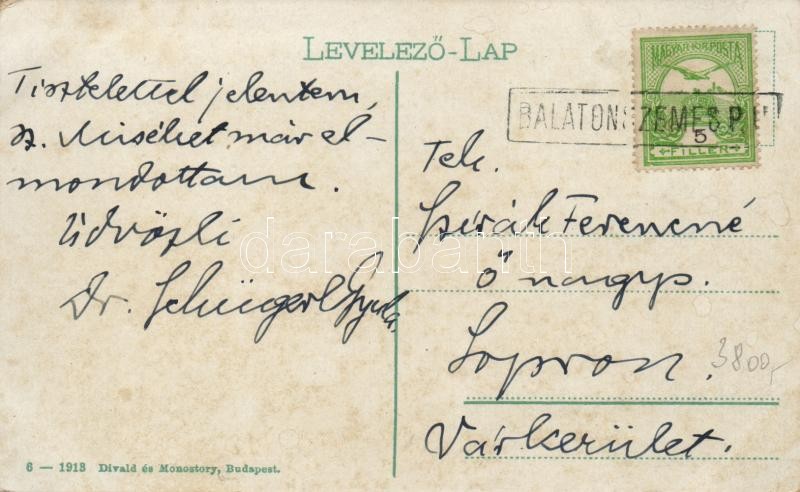 LEVELEZŐ-LAP
MAGYAR KIR. POSTA
BALATONSZEMES P.U.
5
FILLÉR
Tisztelettel jelentem,
sz. Misémet már el-
mondottam.
Üdvözli
Dr. Gyula.
Tek.
Ferencné
ő nagys.
Sopron.
Várkerület.
3800,-
darabanth
6 — 1913 Divald és Monostory, Budapest.